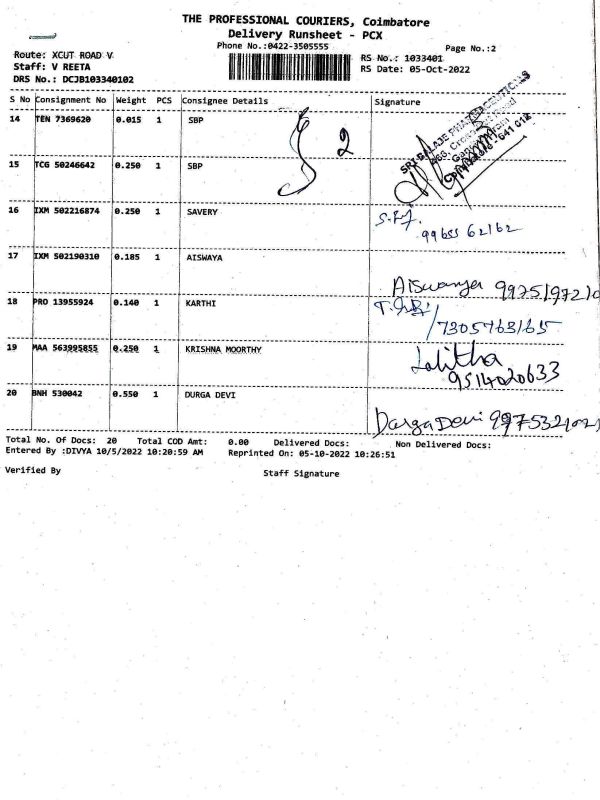 THE PROFESSIONAL COURIERS, Coimbatore
Delivery Runsheet - PCX
Phone No.:0422-3505555
Page No.:2
Route: XCUT ROAD V
Staff: V REETA
DRS No.: DCJB103340102
RS No.: 1033401
RS Date: 05-Oct-2022
S No Consignment No Weight PCS Consignee Details Signature
14 TEN 7369620 0.015 1 SBP
2
SRI BALAJE PHARMACEUTICALS
641 012
15 TCG 50246642 0.250 1 SBP
16 IXM 502216874 0.250 1 SAVERY
99655 62162
17 IXM 502190310 0.185 1 AISWAYA
Aiswarya 997519721
18 PRO 13955924 0.140 1 KARTHI
7305763165
19 MAA 563995855 0.250 1 KRISHNA MOORTHY
Lalitha
9514020633
20 BNH 530042 0.550 1 DURGA DEVI
Durga Devi 997532102
Total No. Of Docs: 20 Total COD Amt: 0.00 Delivered Docs: Non Delivered Docs:
Entered By :DIVYA 10/5/2022 10:20:59 AM Reprinted On: 05-10-2022 10:26:51
Verified By Staff Signature